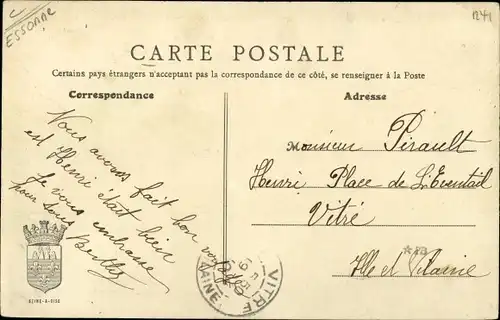 ESSONNE
1241
CARTE POSTALE
Certains pays étrangers n'acceptant pas la correspondance de ce côté, se renseigner à la Poste
Correspondance
Adresse
Vous avons fait bon voyage
est Henri était bien
Je vous embrasse
pour tous
Berthe
Monsieur Pirault
Henri Place de L'Eventail
Vitré
Ille et Vilaine
VITRE